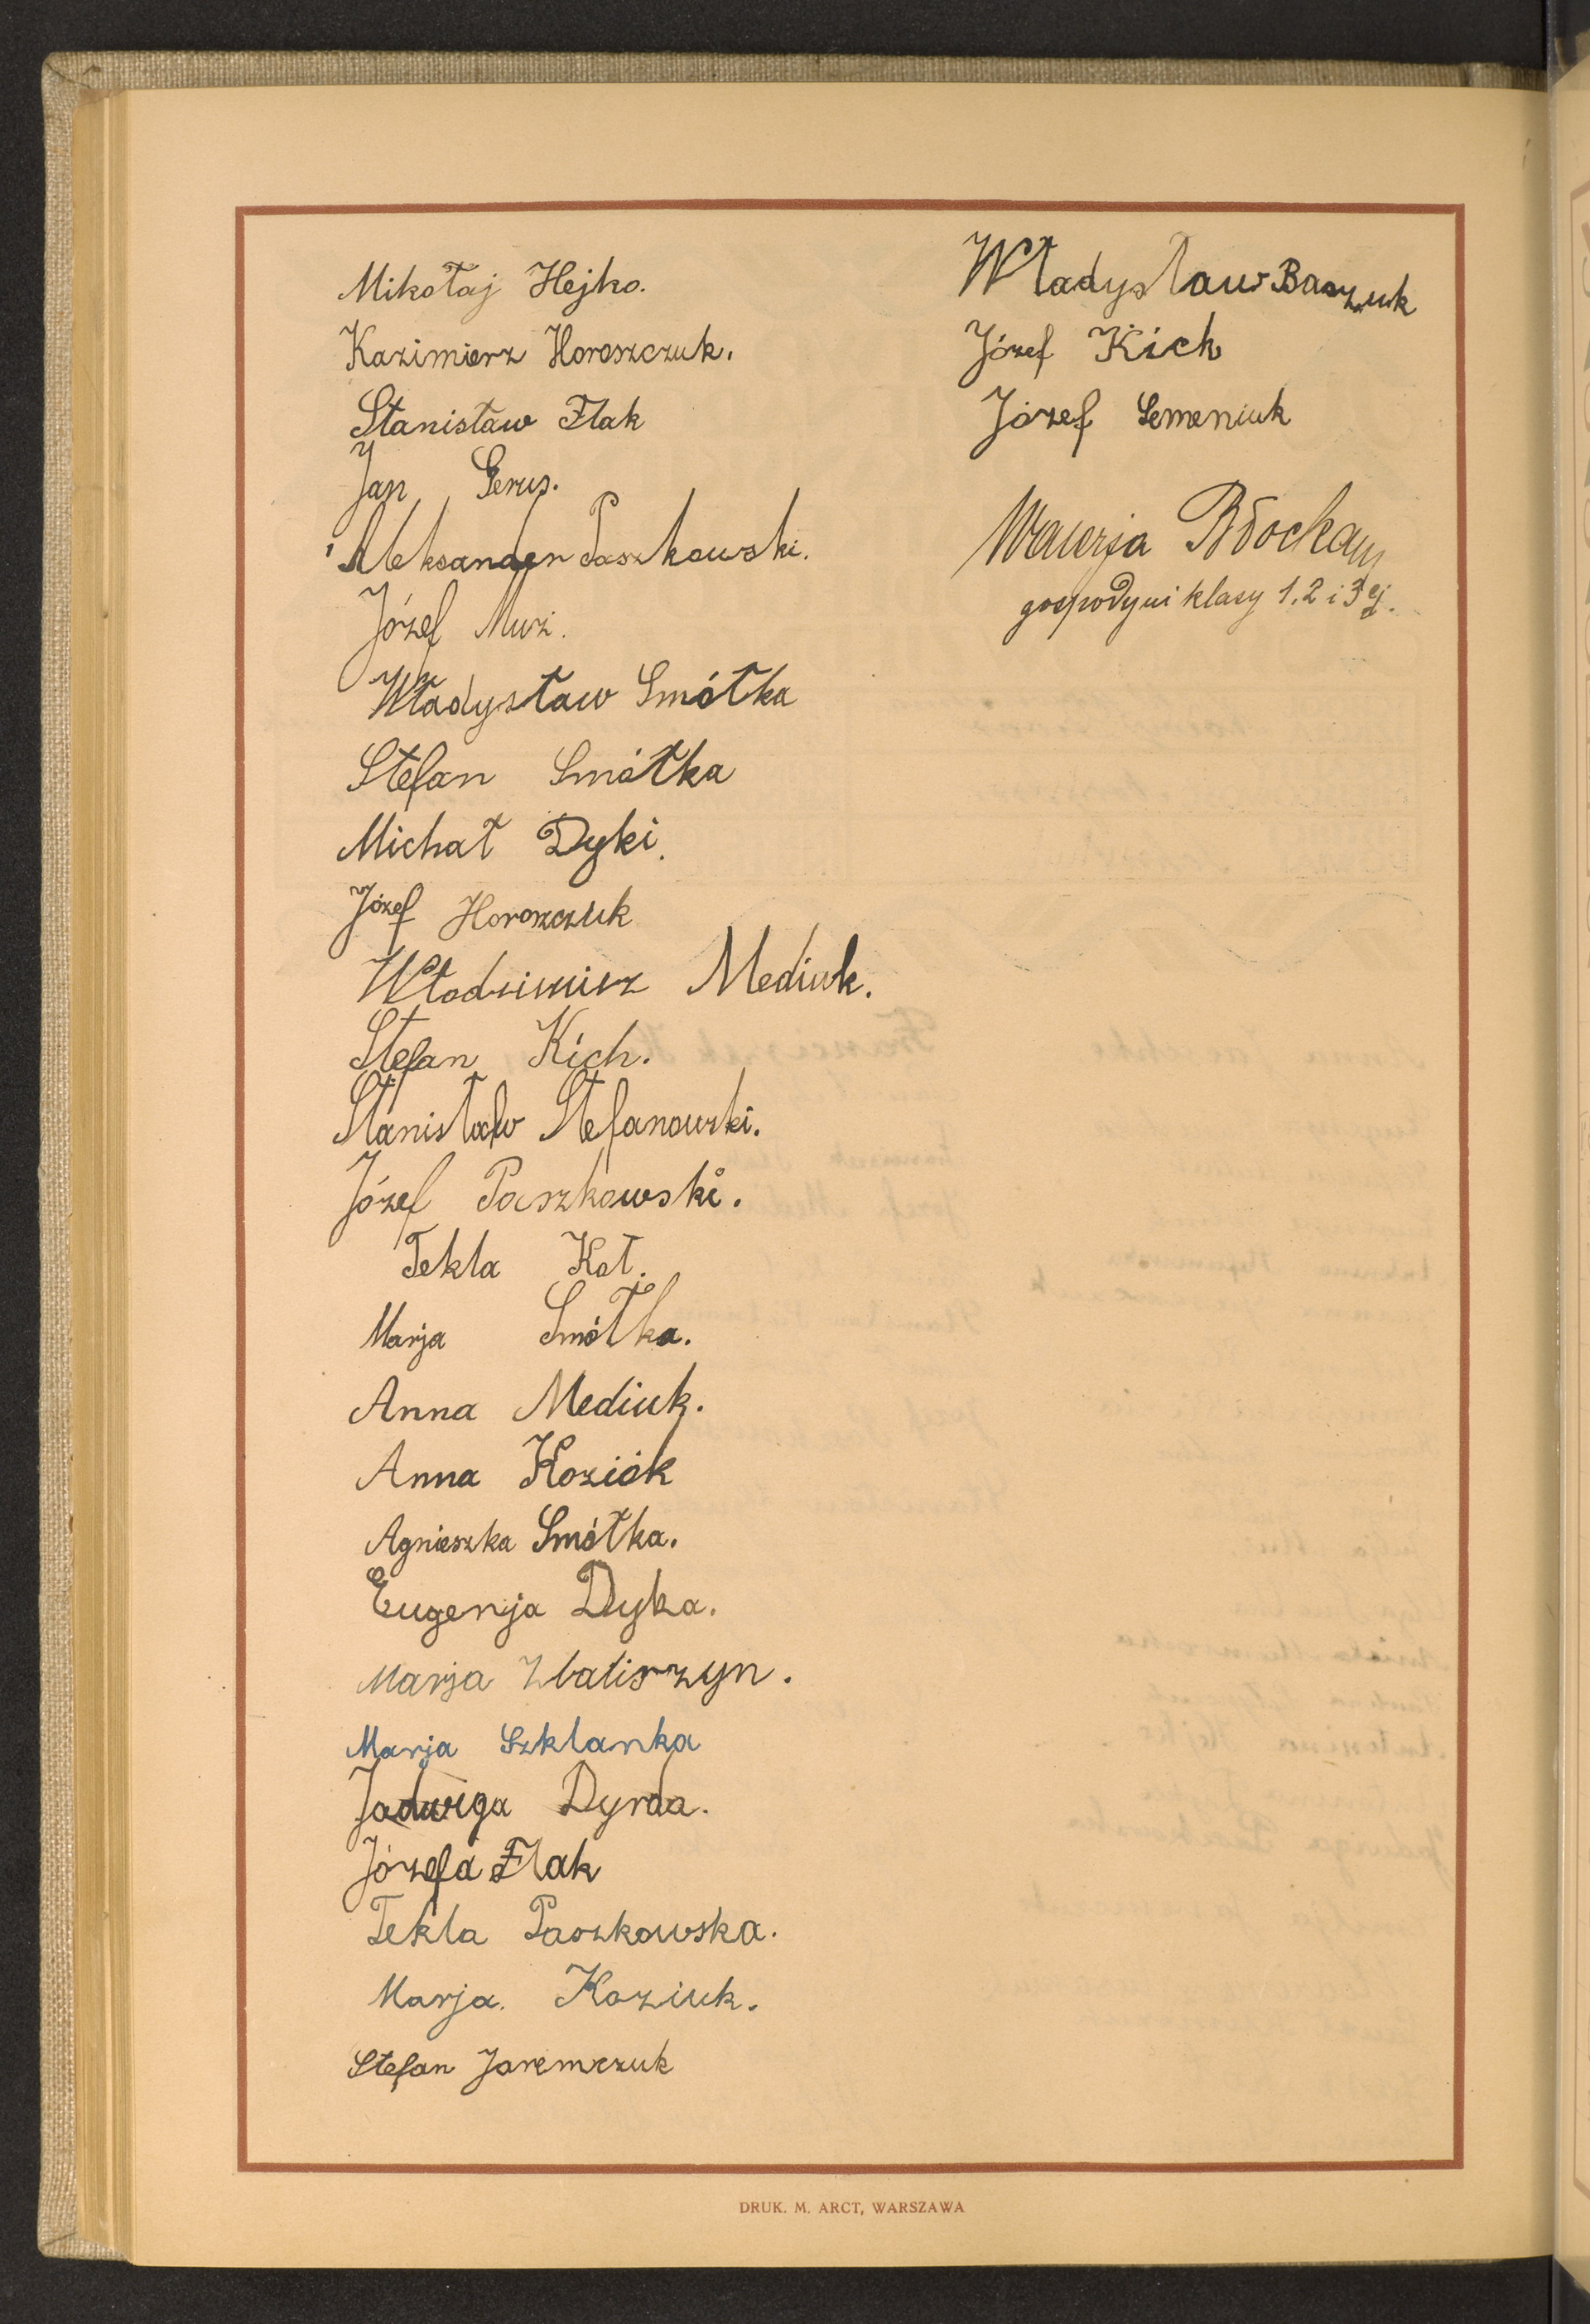 Mikołaj Hejko.
Kazimierz Horoszczuk.
Stanisław Flak
Jan Gerus.
Aleksander Paszkowski.
Józef Muzi.
Władysław Smółka
Stefan Smółka
Michał Dyki.
Józef Horoszczuk
Włodzimierz Mediuk.
Stefan Kich.
Stanisław Stefanowski.
Józef Paszkowski.
Tekla Kot.
Marja Smółka.
Anna Mediuk.
Anna Koziók
Agnieszka Smółka.
Eugenja Dyka.
Marja
Marja Szklanka
Jadwiga Dyrda.
Józefa Flak
Tekla Paszkowska.
Marja. Koziuk.
Stefan Jaremczuk
Władysław Baszuk
Józef Kich
Józef Semeniuk
gospodyni klasy 1, 2 i 3ej.
DRUK. M. ARCT, WARSZAWA